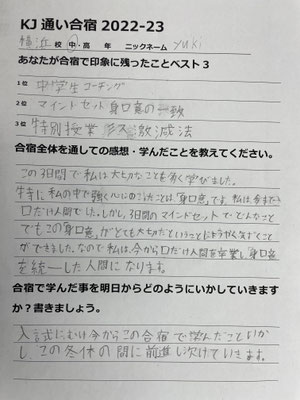 KJ 通い合宿 2022-23
横浜 校 中・高 年 ニックネーム yuki
あなたが合宿で印象に残ったことベスト3
1位 中学生コーチング
2位 マインドセット 身口意の一致
3位 特別授業 ミス激減法
合宿全体を通しての感想・学んだことを教えてください。
この3日間で私は大切なことを多く学びました。
特に私の中で強く心にのこったことは「身口意」です。私は今まで
口だけ人間でした。しかし、3日間のマインドセットでどんなこと
でもこの「身口意」がとても大切だということにようやく気づくこと
ができました。なので私は、今から口だけ人間を卒業し身口意
を統一した人間になります。
合宿で学んだ事を明日からどのようにいかしていきます
か?書きましょう。
入試にむけ今からこの合宿で学んだこといか
し、この冬休の間に前進し次けていきます。